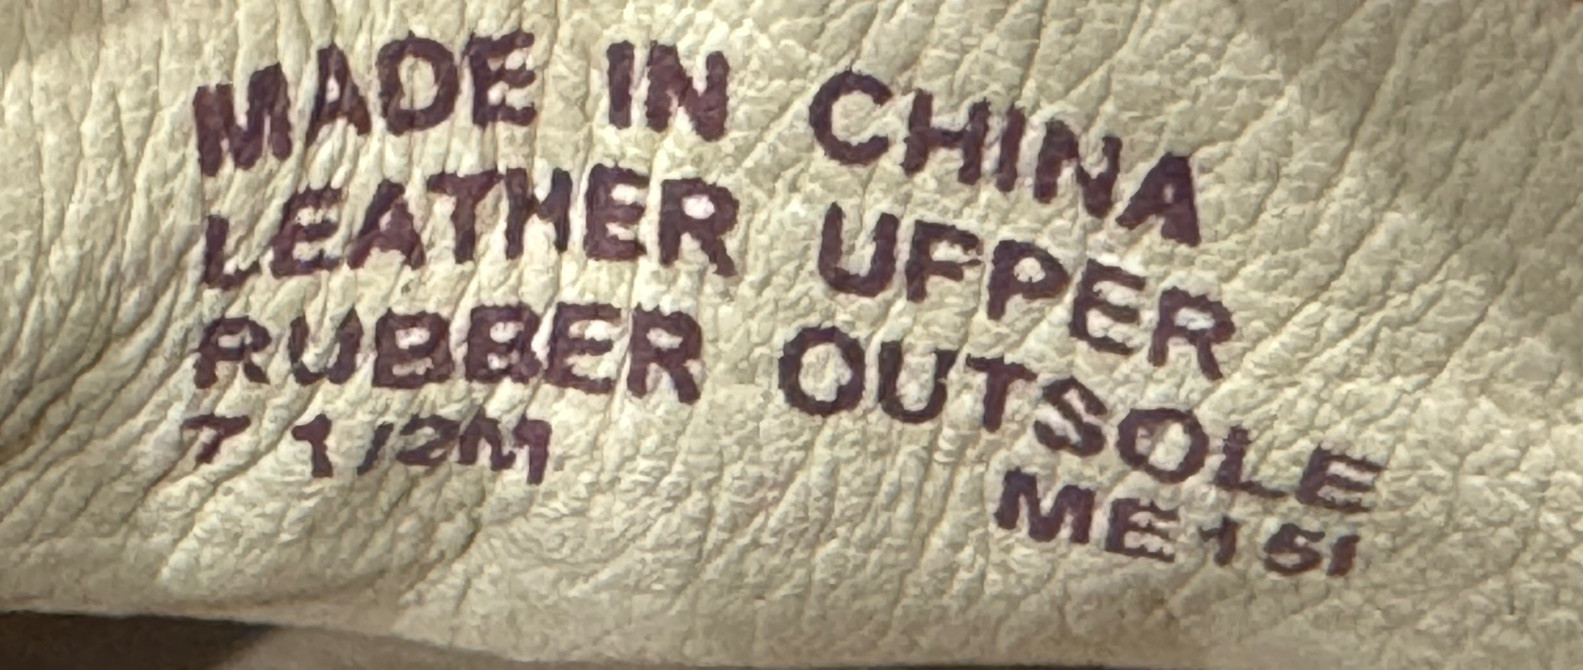 MADE IN CHINA
LEATHER UPPER
RUBBER OUTSOLE
7 1/2M
ME151